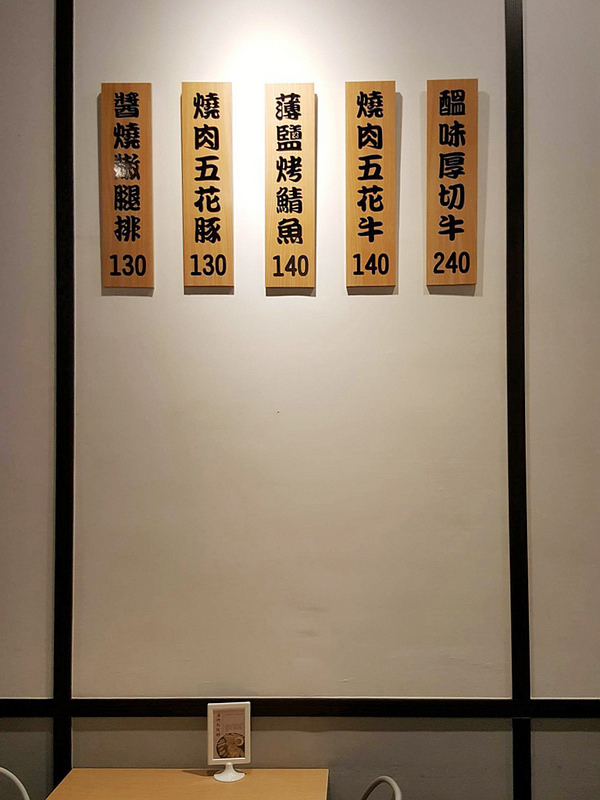 醬燒嫩腿排
130
燒肉五花豚
130
薄鹽烤鯖魚
140
燒肉五花牛
140
醞味厚切牛
240